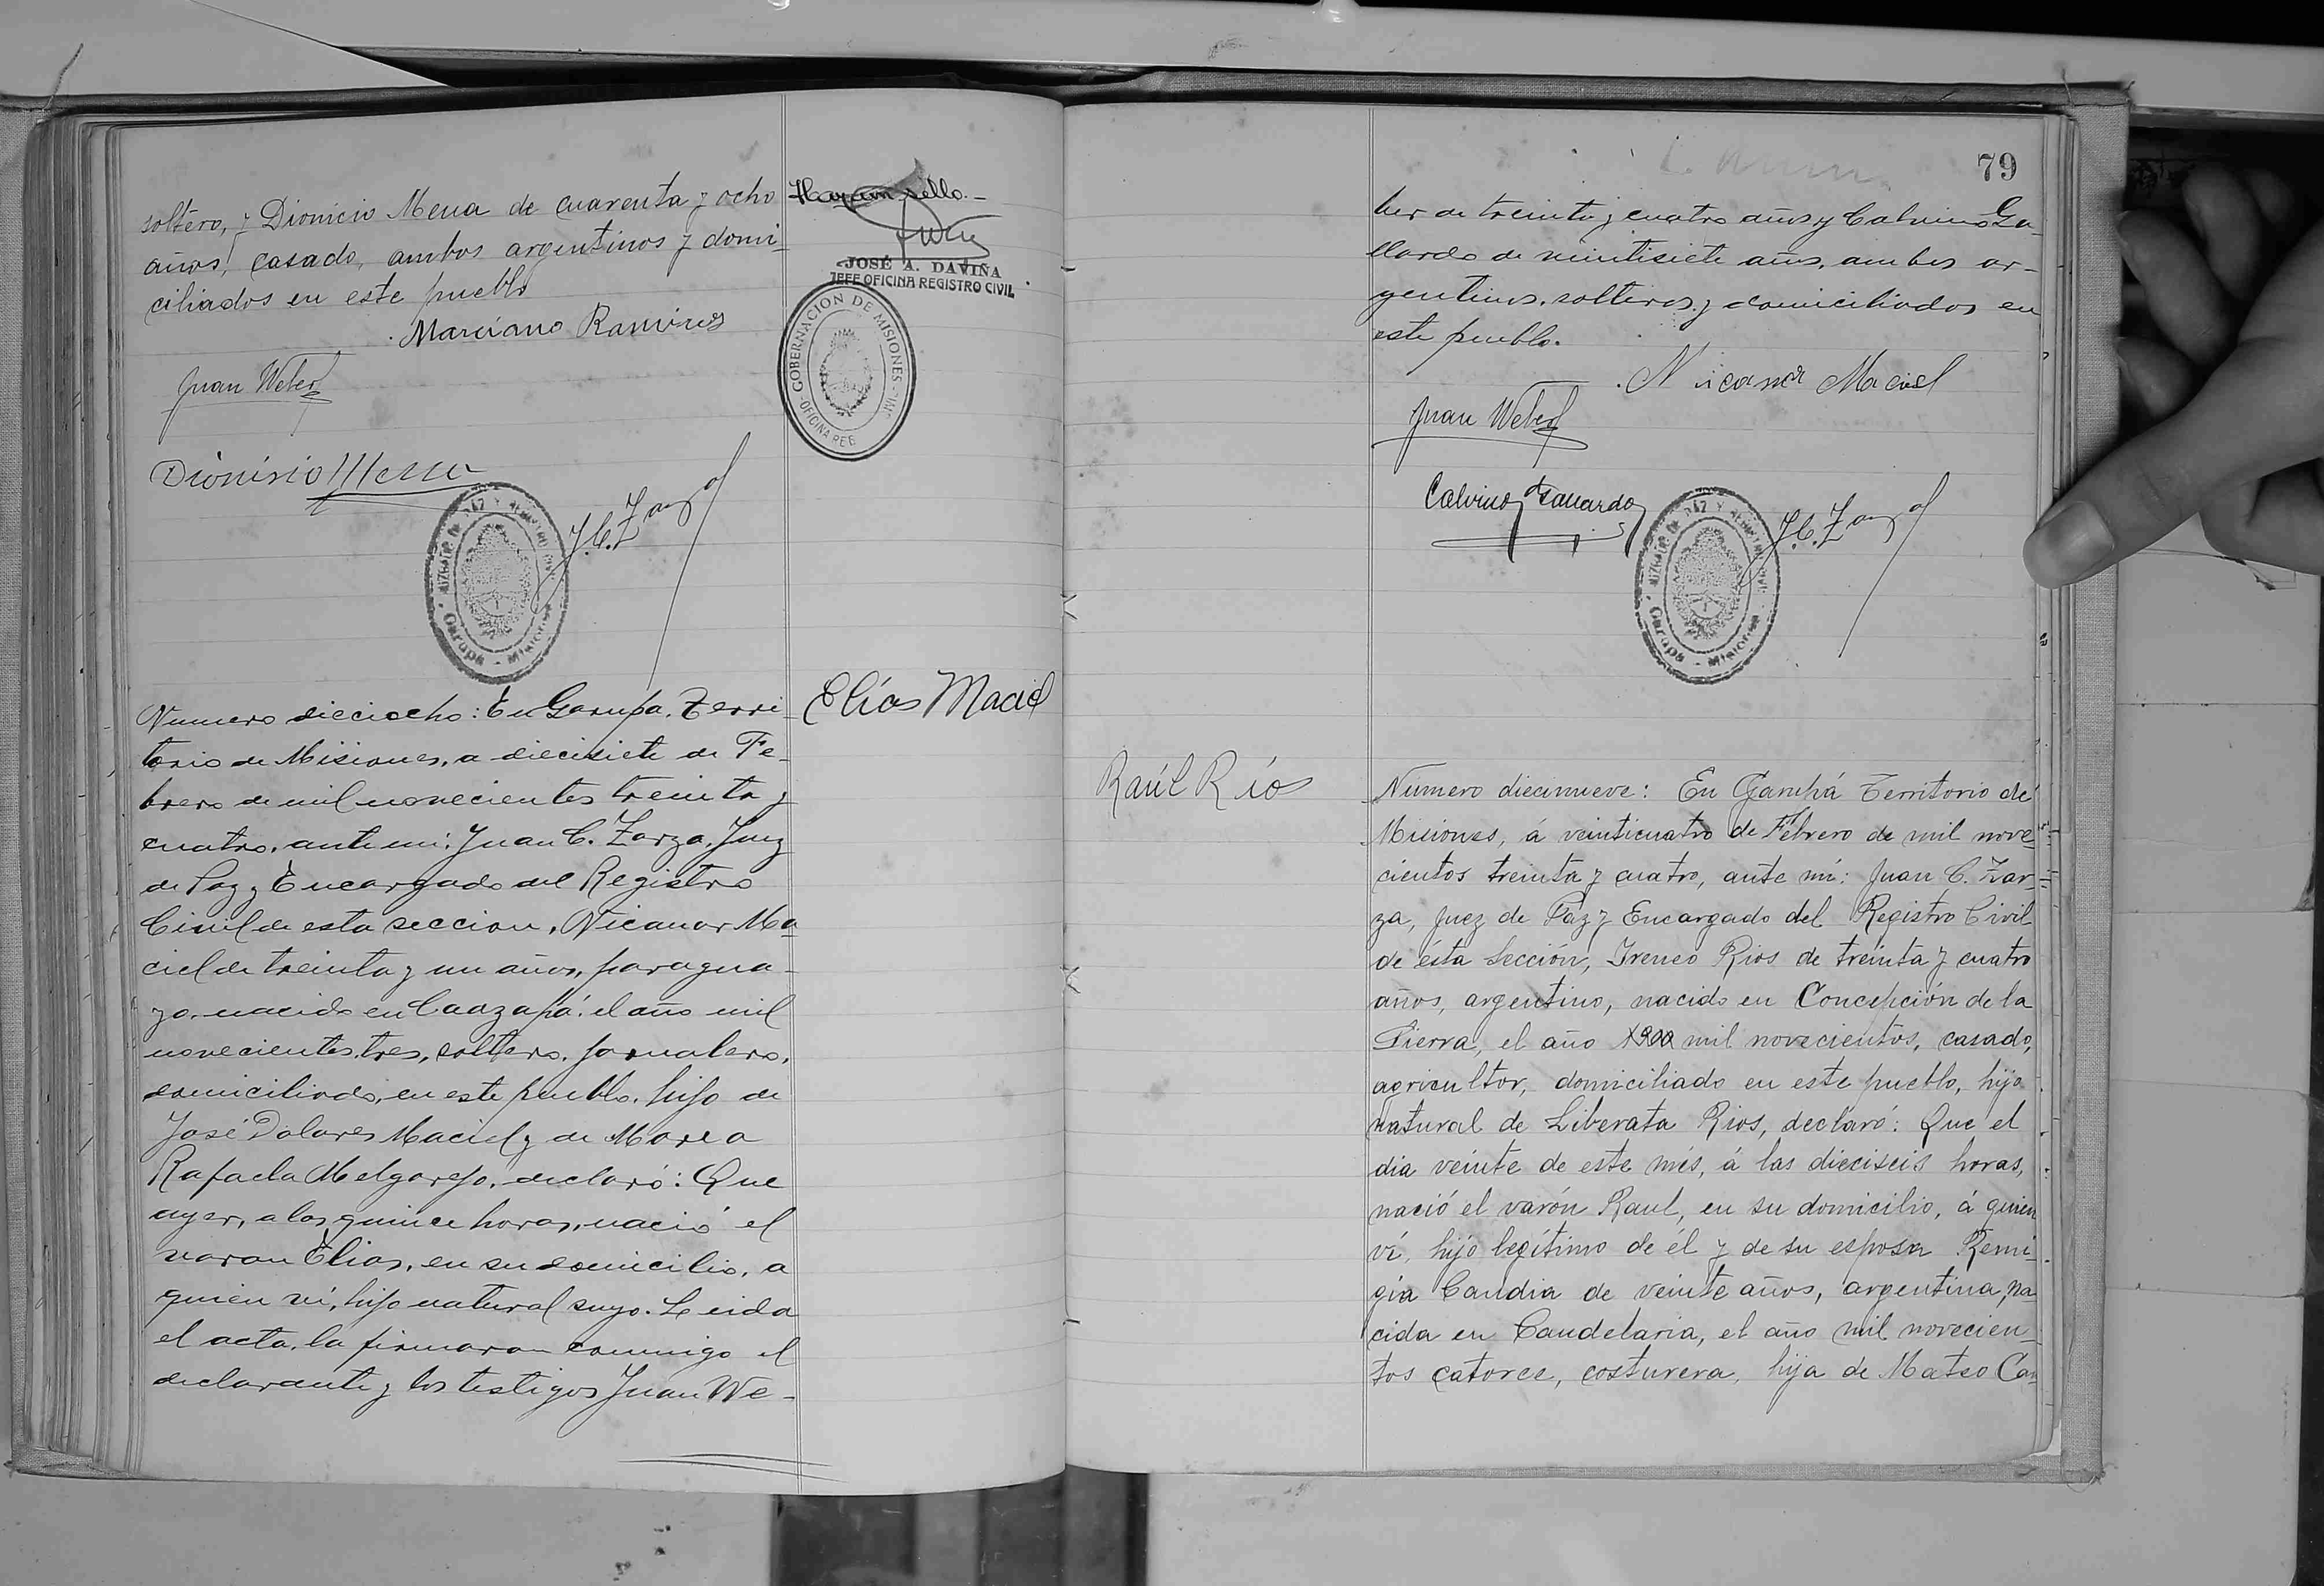 soltero, y Dionicio Mena de cuarenta y ocho
años, casado, ambos argentinos y domi-
ciliados en este pueblo
Marciano Ramirez
Juan Weber
Dionisio Mena
J.C. Zarza
JUZGADO DE PAZ Y REGISTRO CIVIL
Garupá - Misiones
sello.-
JOSÉ A. DAVIÑA
JEFE OFICINA REGISTRO CIVIL
GOBERNACION DE MISIONES
OFICINA REG
Numero dieciocho: En Garupa. Terri-
torio de Misiones, a diecisiete de Fe-
brero de mil novecientos treinta y
cuatro, ante mi: Juan C. Zarza, Juez
de Paz y Encargado del Registro
Civil de esta seccion, Nicanor Ma-
ciel de treinta y un años, paragua-
yo, nacido en Caazapá: el año mil
novecientos tres, soltero, jornalero,
domiciliado, en este pueblo, hijo de
José Dolores Maciel y de Maria
Rafaela Melgarejo, declaró: Que
ayer, a las quince horas, nació el
varon Elias, en su domicilio, a
quien ví, hijo natural suyo. Leida
el acta, la firmaron conmigo el
declarante y los testigos Juan We-
Elías Maciel
79
ber de treinta y cuatro años y Calvino Ga-
llardo de veintisiete años, ambos ar-
gentinos, solteros y domiciliados en
este pueblo.
Nicanor Maciel
Juan Weber
Calvino Gallardo
J.C. Zarza
JUZGADO DE PAZ Y REGISTRO CIVIL
Garupá - Misiones
Raúl Ríos
Número diecinueve: En Garupá Territorio de
Misiones, á veinticuatro de Febrero de mil nove-
cientos treinta y cuatro, ante mí: Juan C. Zar-
za, Juez de Paz y Encargado del Registro Civil
de ésta Sección, Ireneo Rios de treinta y cuatro
años, argentino, nacido en Concepción de la
Sierra, el año 1900 mil novecientos, casado,
agricultor, domiciliado en este pueblo, hijo
natural de Liberata Rios, declaró: Que el
dia veinte de este més, á las dieciseis horas,
nació el varón Raul, en su domicilio, á quien
ví, hijo legítimo de él y de su esposa Remi-
gia Candia de veinte años, argentina, na-
cida en Candelaria, el año mil novecien-
tos catorce, costurera, hija de Mateo Can-